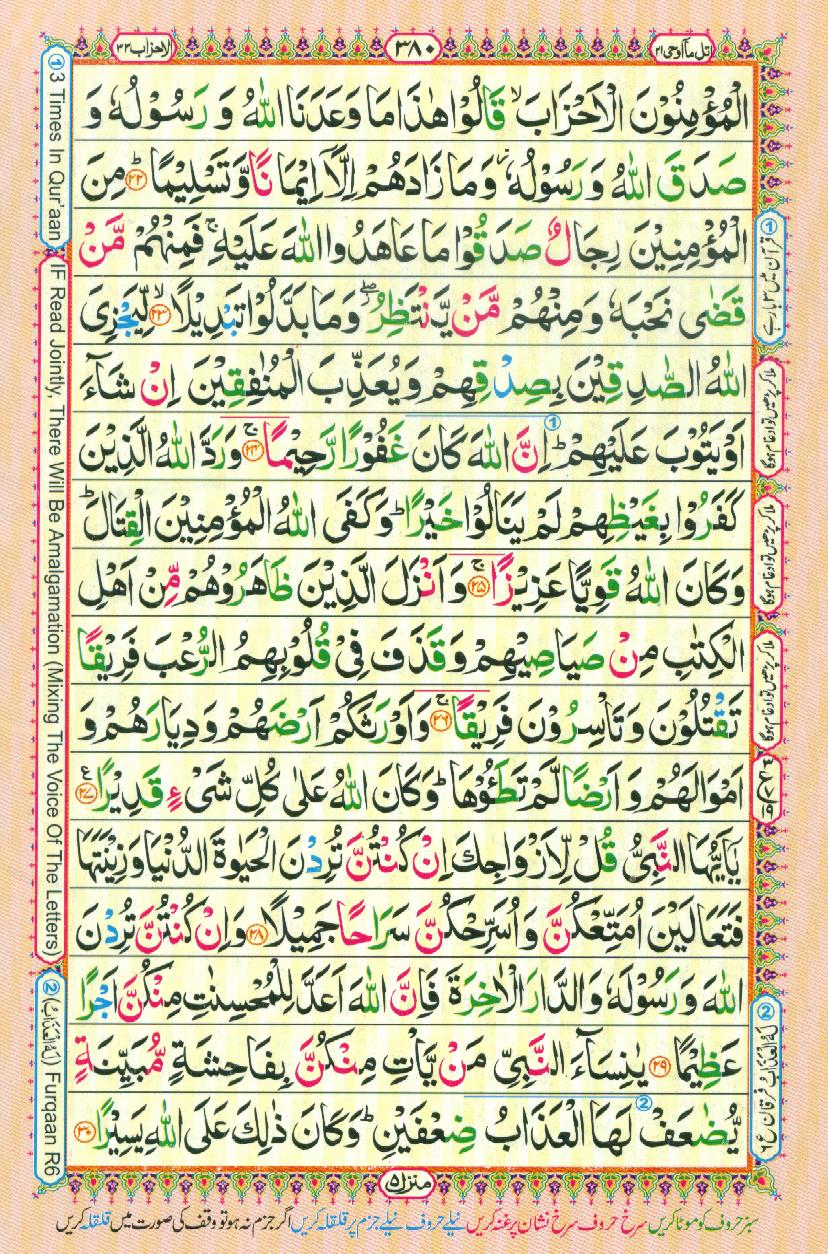 اتل مآ اوحی ۲۱
۳۸۰
الاحزاب ۳۳
الْمُؤْمِنُوْنَ الْاَحْزَابَ ۙ قَالُوْا هٰذَا مَا وَعَدَنَا اللّٰهُ وَ رَسُوْلُهٗ وَ
صَدَقَ اللّٰهُ وَ رَسُوْلُهٗ ۫ وَ مَا زَادَهُمْ اِلَّاۤ اِيْمَانًا وَّ تَسْلِيْمًا ؕ۲۲ مِنَ
الْمُؤْمِنِيْنَ رِجَالٌ صَدَقُوْا مَا عَاهَدُوا اللّٰهَ عَلَيْهِ ۚ فَمِنْهُمْ مَّنْ
قَضٰى نَحْبَهٗ وَ مِنْهُمْ مَّنْ يَّنْتَظِرُ ۖ وَ مَا بَدَّلُوْا تَبْدِيْلًا ۙ۲۳ لِّيَجْزِىَ
اللّٰهُ الصّٰدِقِيْنَ بِصِدْقِهِمْ وَ يُعَذِّبَ الْمُنٰفِقِيْنَ اِنْ شَآءَ
اَوْ يَتُوْبَ عَلَيْهِمْ ؕ ① اِنَّ اللّٰهَ كَانَ غَفُوْرًا رَّحِيْمًا ۚ۲۴ وَ رَدَّ اللّٰهُ الَّذِيْنَ
كَفَرُوْا بِغَيْظِهِمْ لَمْ يَنَالُوْا خَيْرًا ؕ وَ كَفَى اللّٰهُ الْمُؤْمِنِيْنَ الْقِتَالَ ؕ
وَ كَانَ اللّٰهُ قَوِيًّا عَزِيْزًا ۚ۲۵ وَ اَنْزَلَ الَّذِيْنَ ظَاهَرُوْهُمْ مِّنْ اَهْلِ
الْكِتٰبِ مِنْ صَيَاصِيْهِمْ وَ قَذَفَ فِىْ قُلُوْبِهِمُ الرُّعْبَ فَرِيْقًا
تَقْتُلُوْنَ وَ تَاْسِرُوْنَ فَرِيْقًا ۚ۲۶ وَ اَوْرَثَكُمْ اَرْضَهُمْ وَ دِيَارَهُمْ وَ
اَمْوَالَهُمْ وَ اَرْضًا لَّمْ تَطَـُٔوْهَا ؕ وَ كَانَ اللّٰهُ عَلٰى كُلِّ شَىْءٍ قَدِيْرًا ۲۷ ع
يٰۤاَيُّهَا النَّبِىُّ قُلْ لِّاَزْوَاجِكَ اِنْ كُنْتُنَّ تُرِدْنَ الْحَيٰوةَ الدُّنْيَا وَ زِيْنَتَهَا
فَتَعَالَيْنَ اُمَتِّعْكُنَّ وَ اُسَرِّحْكُنَّ سَرَاحًا جَمِيْلًا ۲۸ وَ اِنْ كُنْتُنَّ تُرِدْنَ
اللّٰهَ وَ رَسُوْلَهٗ وَ الدَّارَ الْاٰخِرَةَ فَاِنَّ اللّٰهَ اَعَدَّ لِلْمُحْسِنٰتِ مِنْكُنَّ اَجْرًا
عَظِيْمًا ۲۹ يٰنِسَآءَ النَّبِىِّ مَنْ يَّاْتِ مِنْكُنَّ بِفَاحِشَةٍ مُّبَيِّنَةٍ
يُّضٰعَفْ ② لَهَا الْعَذَابُ ضِعْفَيْنِ ؕ وَ كَانَ ذٰلِكَ عَلَى اللّٰهِ يَسِيْرًا ۳۰
منزل ۵
سبز حروف کو موٹا کریں سرخ حروف سرخ نشان پر غنہ کریں نیلے حروف نیلے جزم پر قلقلہ کریں اگر جزم نہ ہو تو وقف کی صورت میں قلقلہ کریں
① قرآن میں ۳ بار ہے
ملا کر پڑھیں تو ادغام ہوگا
ملا کر پڑھیں تو ادغام ہوگا
ملا کر پڑھیں تو ادغام ہوگا
② لَهُ الْعَذَابُ فرقان ع ۶
① 3 Times In Qur'aan
IF Read Jointly, There Will Be Amalgamation (Mixing The Voice Of The Letters)
② (لَهُ الْعَذَابُ) Furqaan R6